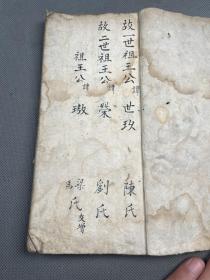 故一世祖王公諱世玖 陳氏
故二世祖王公諱榮 劉氏
祖王公諱璈 梁氏 馬氏